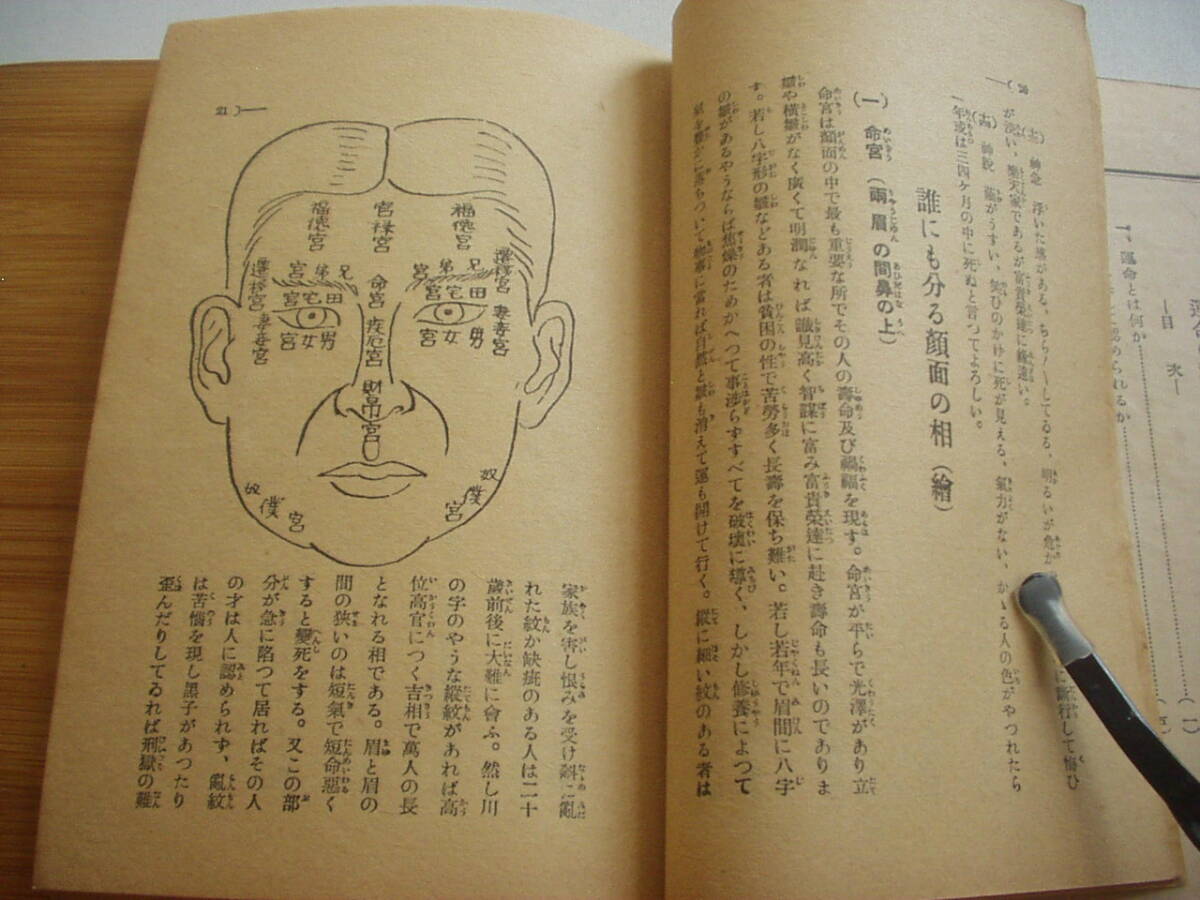 20
(十三) 神急 浮いた樣がある、ちら〳〵してゐる、明るいが危か
が淺い、樂天家であるが富貴榮達に緣遠い。
(十四) 神脫 藍がうすい、笑ひのかけに死が見える、氣力がない、かゝる人の色がやつれたら
一年或は三四ケ月の中に死ぬと言つてよろしい。
誰にも分る顏面の相(繪)
(一) 命宮(兩眉の間鼻の上)
命宮は顏面の中で最も重要な所でその人の壽命及び禍福を現す。命宮が平らで光澤があり立
皺や橫皺がなく廣くて明潤なれば識見高く智謀に富み富貴榮達に赴き壽命も長いのでありま
す。若し八字形の皺などある者は貧困の性で苦勞多く長壽を保ち難い。若し若年で眉間に八字
の皺があるやうならば焦燥のためかへつて事涉らずすべてを破壞に導く、しかし修養によつて
落ちついて物事に當れば自然と皺も消えて運も開けて行く。縱に細い紋のある者は
21
福德宮
官祿宮
福德宮
遷移宮
兄弟宮
命宮
兄弟宮
遷移宮
田宅宮
田宅宮
妻妾宮
男女宮
疾厄宮
男女宮
妻妾宮
財帛宮
奴僕宮
奴僕宮
家族を害し恨みを受け斜に亂
れた紋か缺疵のある人は二十
歲前後に大難に會ふ。然し川
の字のやうな縱紋があれば高
位高官につく吉相で萬人の長
となれる相である。眉と眉の
間の狹いのは短氣で短命惡く
すると變死をする。又この部
分が急に陷つて居ればその人
の才は人に認められず、亂紋
は苦惱を現し黑子があつたり
歪んだりしてゐれば刑獄の難
目次
一、運命とは何か
認められるか
(一)